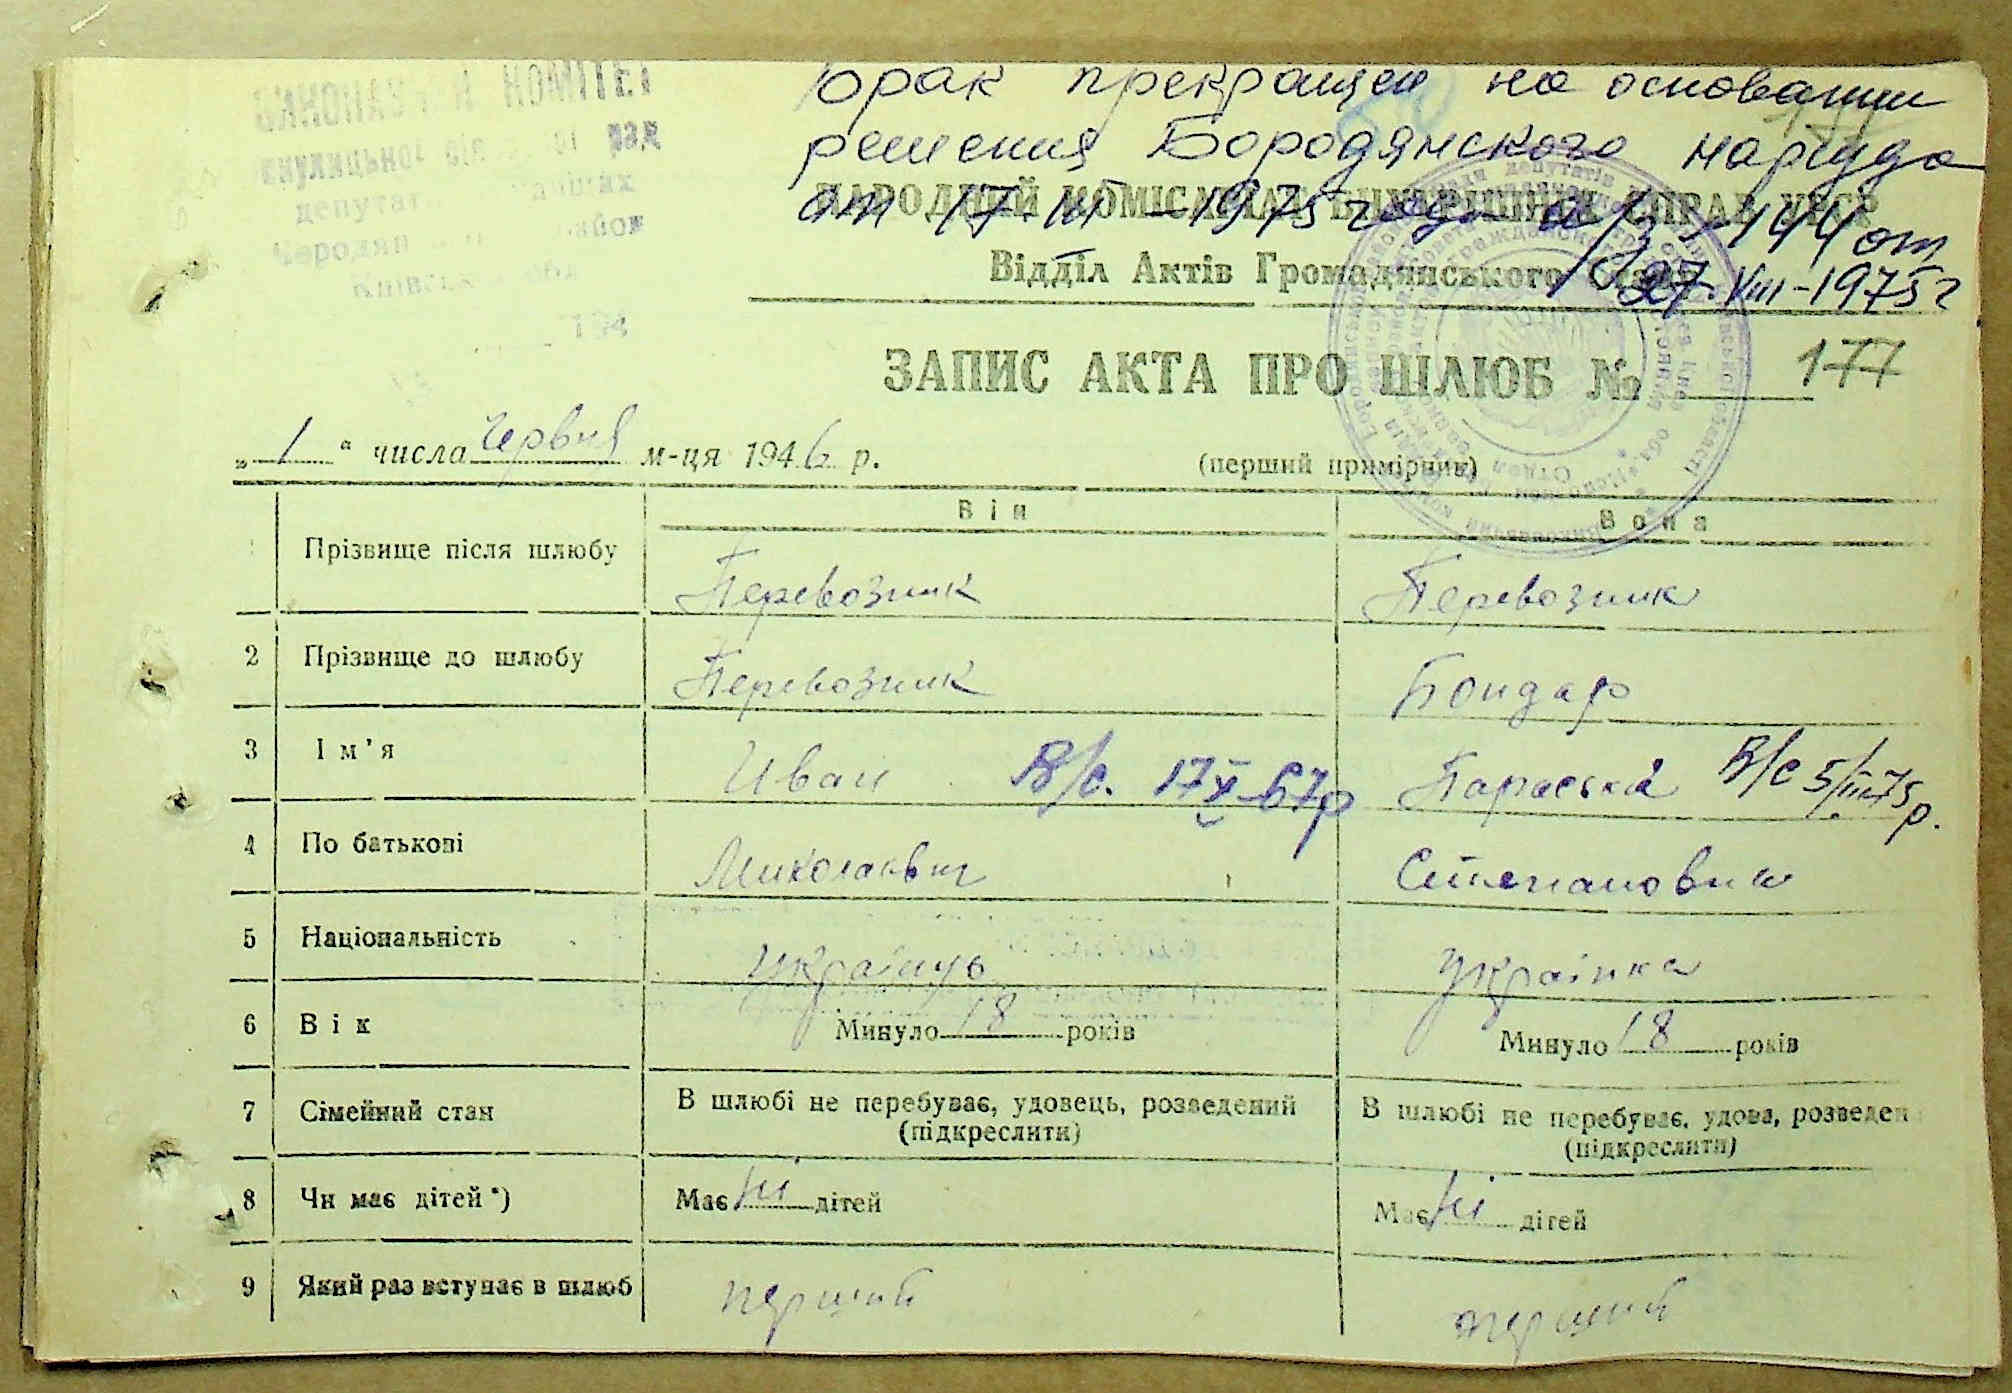 ВИКОНАВЧИЙ КОМІТЕТ
депутатів
194
брак прекращен на основании
решения Бородянского нарсуда
от 17.III-1975 года а/з №144 от
27.VIII-1975г
НАРОДНИЙ КОМІСАРІАТ ВНУТРІШНІХ СПРАВ УРСР
Відділ Актів Громадянського Стану
ЗАПИС АКТА ПРО ШЛЮБ № 177
„1“ числа червня м-ця 1946 р. (перший примірник)
Він Вона
Прізвище після шлюбу Перевозник Перевозник
2 Прізвище до шлюбу Перевозник Бондар
3 Ім'я Иван В/с. 17 X-67р Параска В/с 5/III-75р.
4 По батькові Миколаевич Степановна
5 Національність українць українка
6 Вік Минуло 18 років Минуло 18 років
7 Сімейний стан В шлюбі не перебуває, удовець, розведений (підкреслити) В шлюбі не перебуває, удова, розведен (підкреслити)
8 Чи має дітей*) Має ні дітей Має ні дітей
9 Який раз вступає в шлюб перший перший